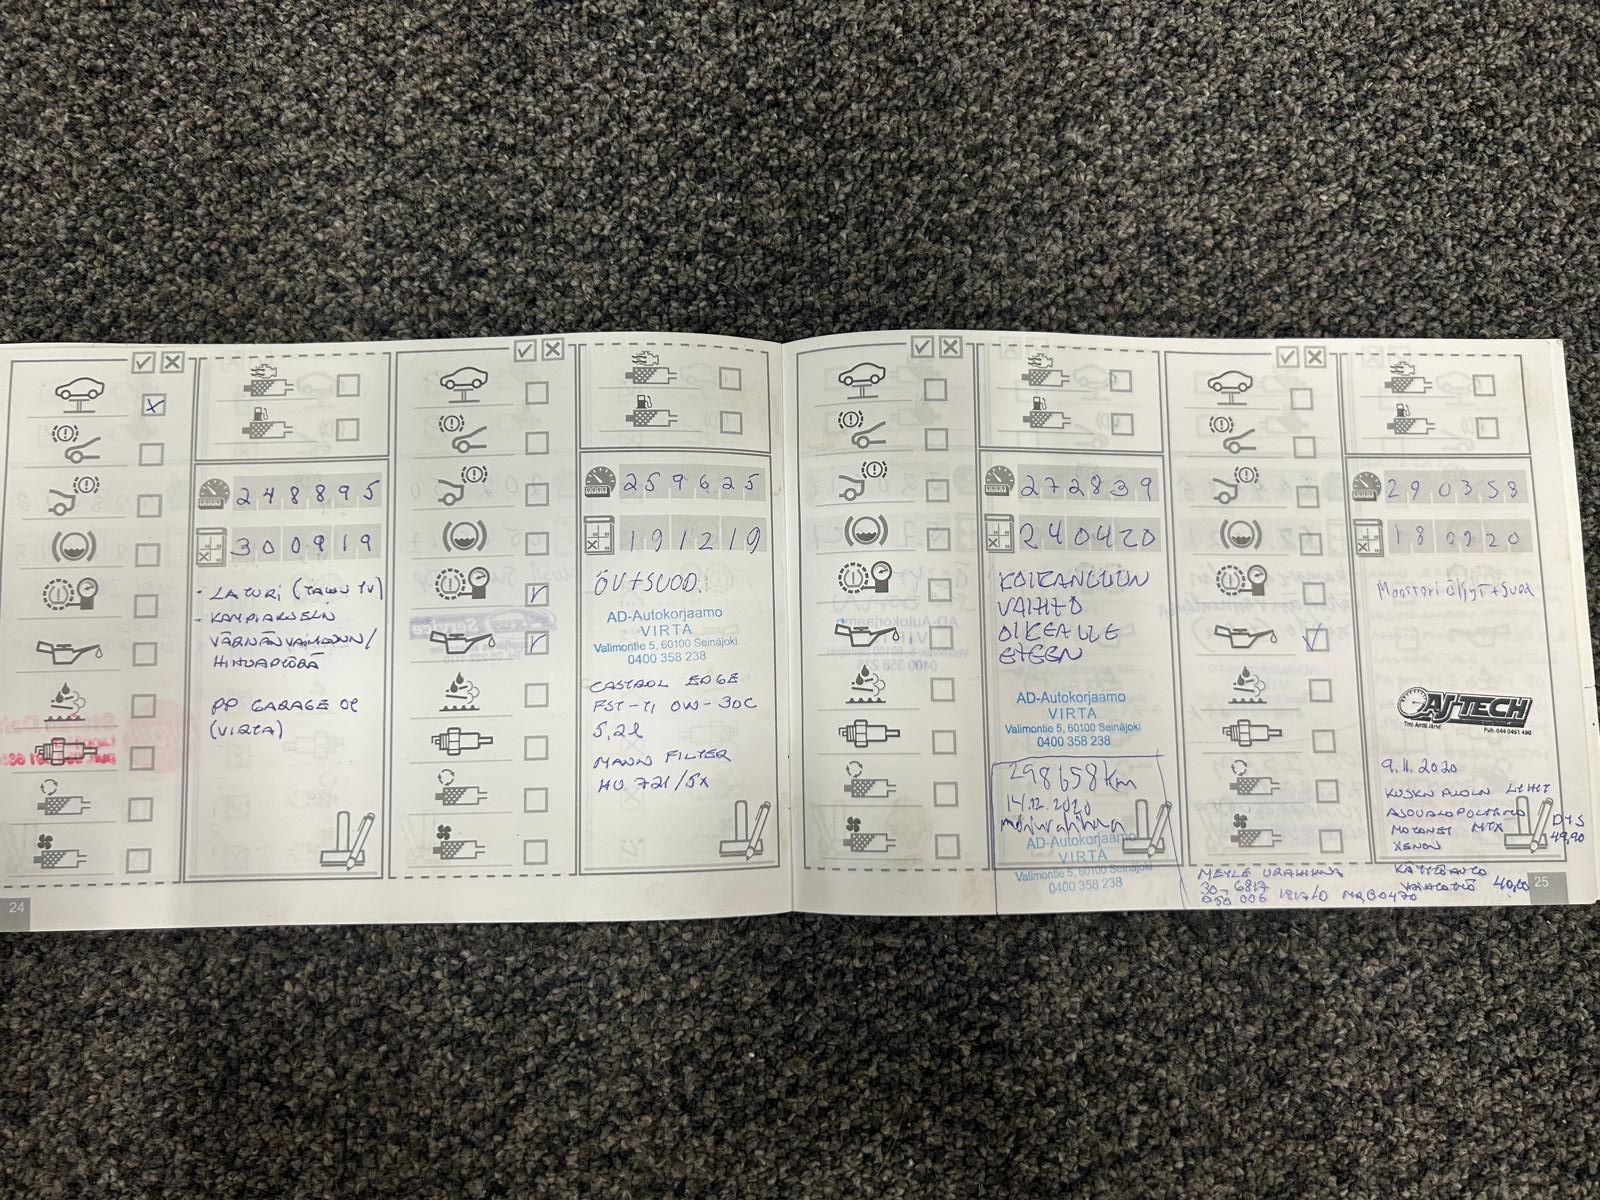 248895
300919
- LATURI (TALON TV)
- KAMPIAKSELIN
VÄRNÄNVAIMENN/
HIHNAPYÖRÄ
PP GARAGE OY
(VIRTA)
24
259625
191219
ÖV+SUOD.
AD-Autokorjaamo
VIRTA
Valimontie 5, 60100 Seinäjoki
0400 358 238
CASTROL EDGE
FST-TI 0W-30C
5,2l
MANN FILTER
HU 721/5X
272839
240420
KOIRANLUUN
VAIHTO
OIKEALLE
ETEEN
AD-Autokorjaamo
VIRTA
Valimontie 5, 60100 Seinäjoki
0400 358 238
298658km
14.12.2020
moniurahihna
AD-Autokorjaamo
VIRTA
Valimontie 5, 60100 Seinäjoki
0400 358 238
290358
180920
Moottoriöljyt+Suod
AJ-TECH
Tmi Antti Järvi
Puh. 044 0451 490
9.11.2020
KUSKIN PUOLEN
AJOVALOPOLTTIMO
MOTONET MTX
XENON
D1S
49,90
KÄYTTÖAUTO
VAIHTOTYÖ 40,00
MEYLE URAHIHNA
30-6817
050 006 1817/D MRB0470
25